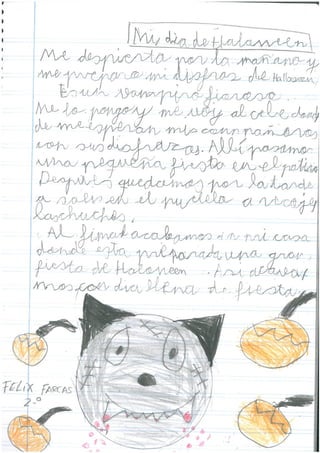 Mi día de Haloween
Me despierta por la mañana y
me preparo mi disfras de Halloween
Es un vampiro fioroso.
Me lo pongo y me voy al cole donde
de me esperan mis compañeros
con sus disfrazas. Allí pasamos
una pequeña fiesta en el patio
Después quedamos por la tarde
a salir en el
las chuches.
Al final acabamos in mi casa
donde esta preparada una gran
fiesta de Haloween. Asi acavar
mos con dia llena de fiesta
FELIX FARCAS
2.º